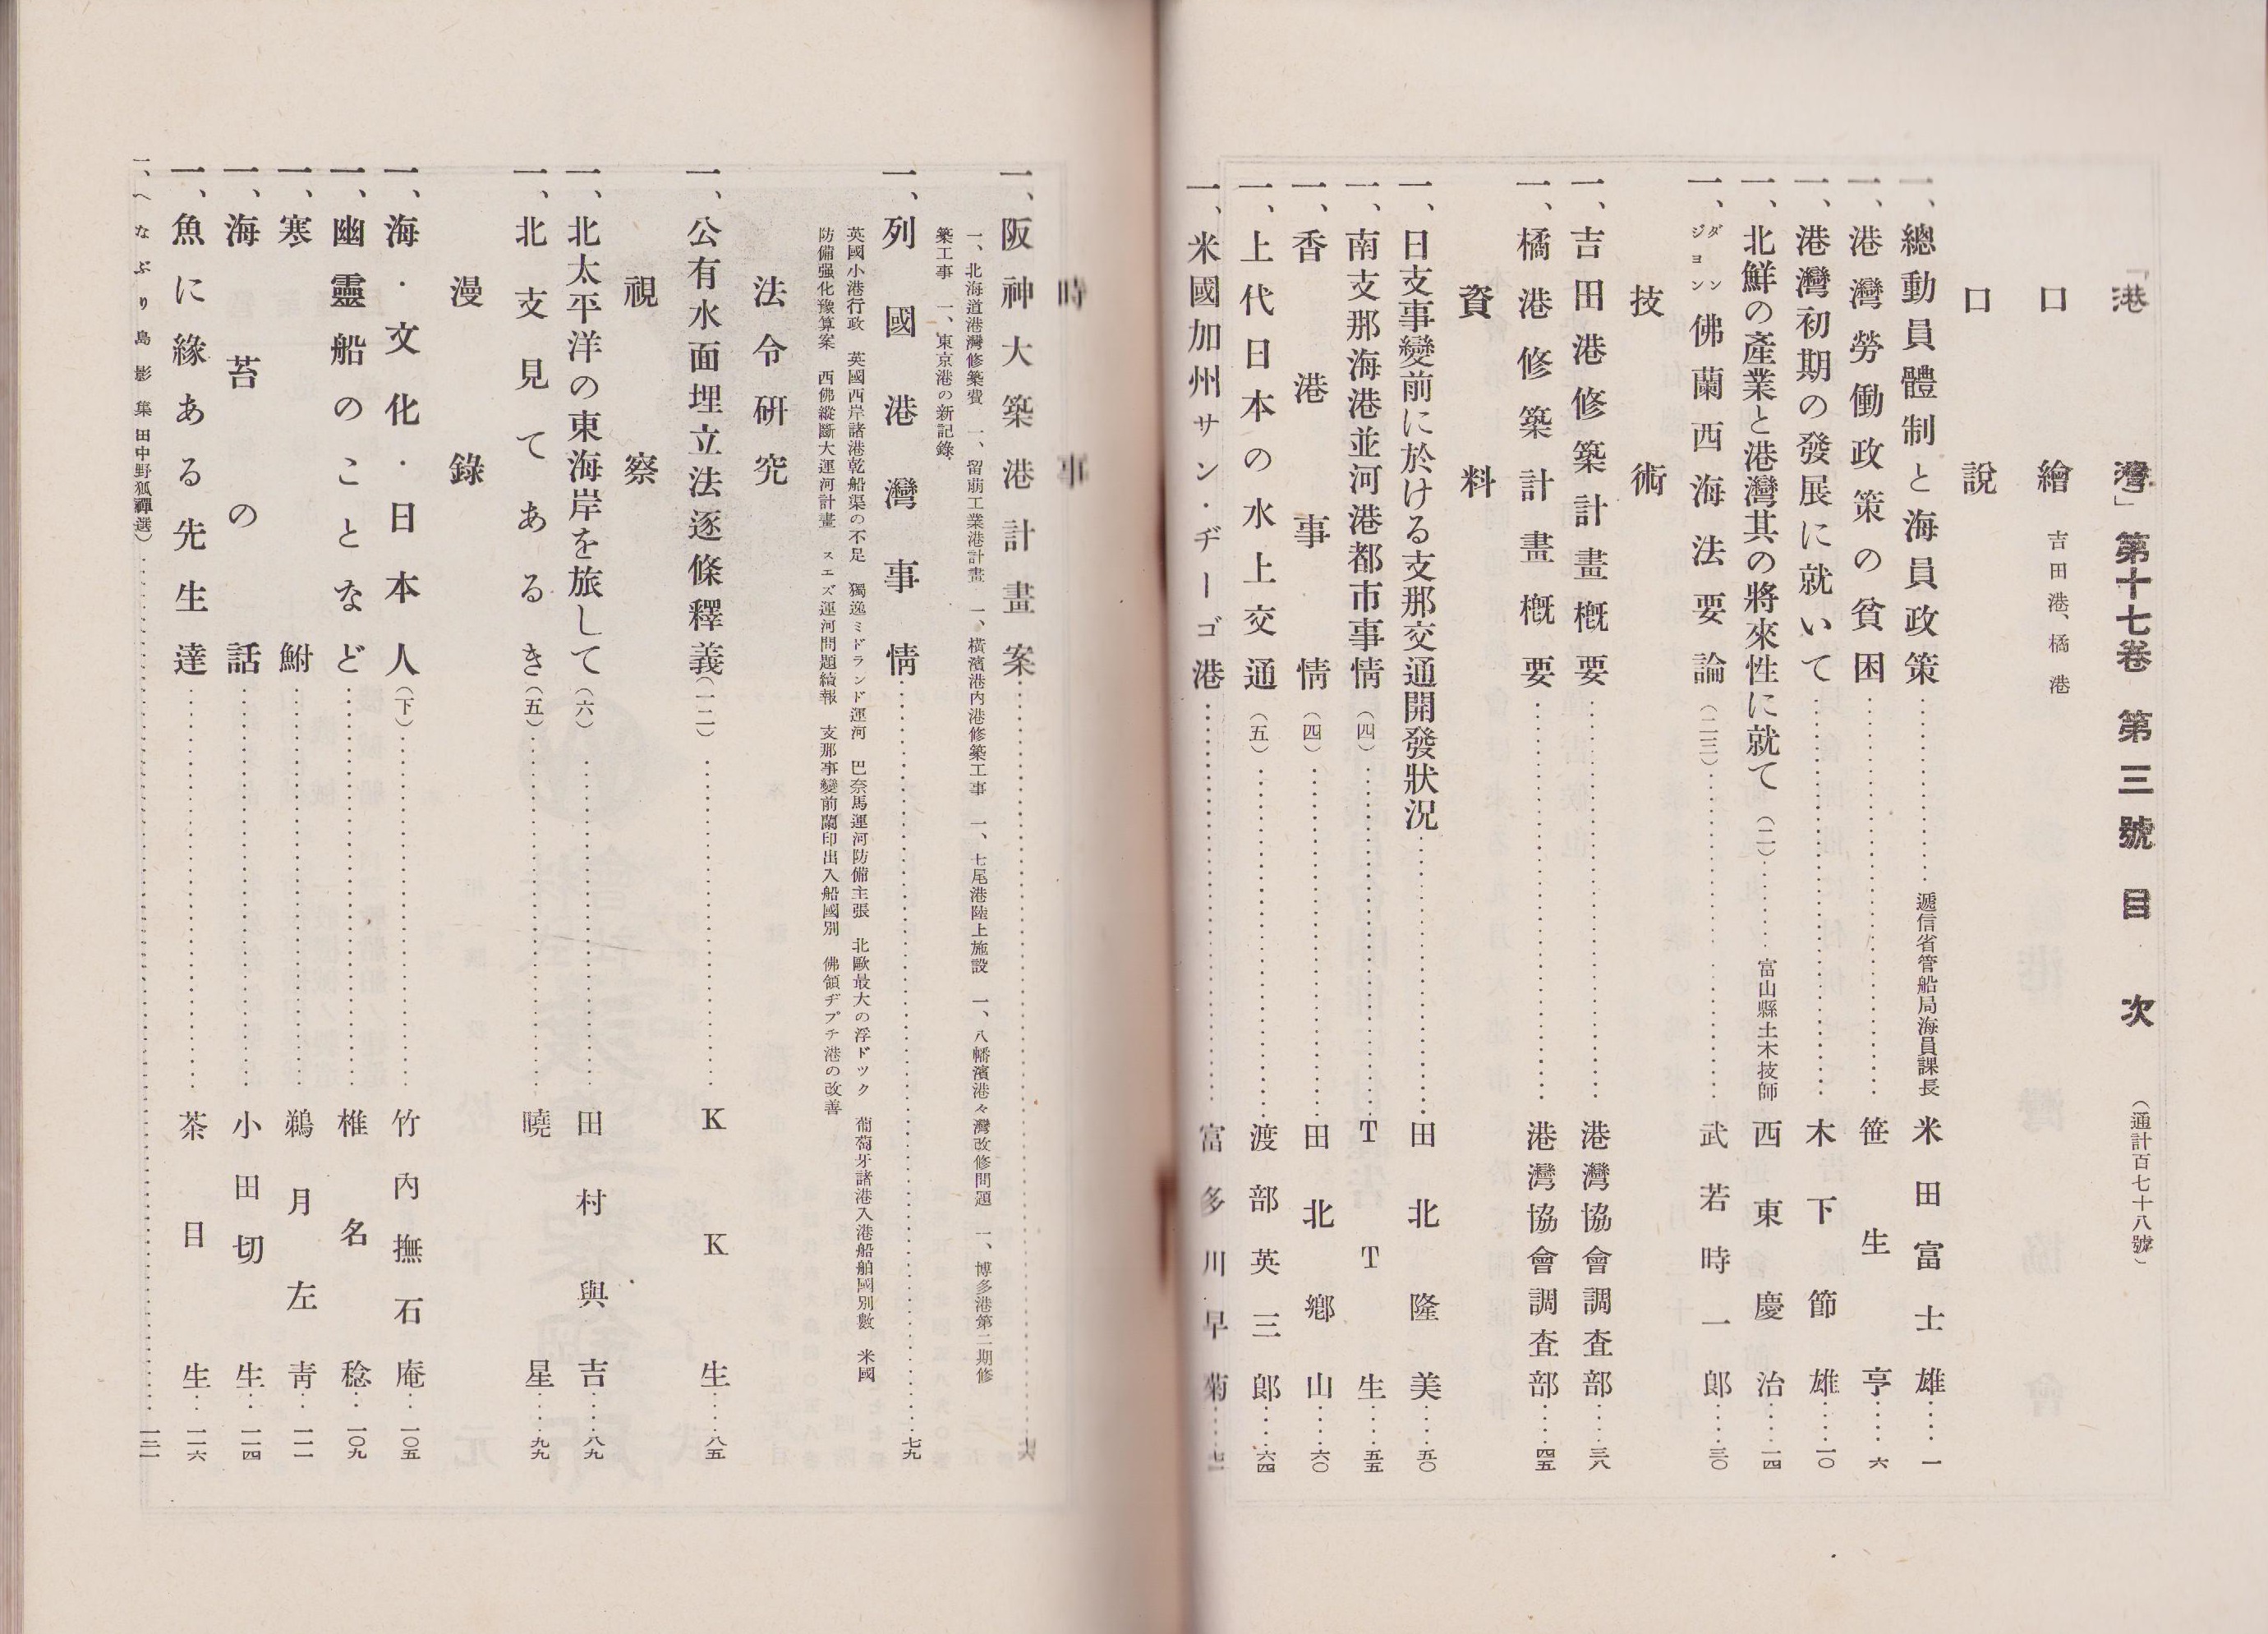 「港灣」第十七卷 第三號 目次 (通計百七十八號)
口繪 吉田港、橘港
口說
一、總動員體制と海員政策……遞信省管船局海員課長 米田富士雄……一
一、港灣勞働政策の貧困……笹生亨……六
一、港灣初期の發展に就いて……木下節雄……一〇
一、北鮮の產業と港灣其の將來性に就て(二)……富山縣土木技師 西東慶治……一四
一、ダンジョン佛蘭西海法要論(二三)……武若時一郎……三〇
技術
一、吉田港修築計畫槪要……港灣協會調査部……三八
一、橘港修築計畫槪要……港灣協會調査部……四五
資料
一、日支事變前に於ける支那交通開發狀況……田北隆美……五〇
一、南支那海港並河港都市事情(四)……TT生……五五
一、香港事情(四)……田北鄕山……六〇
一、上代日本の水上交通(五)……渡部英三郎……六四
一、米國加州サン・ヂーゴ港……富多川早菊……
時事
一、阪神大築港計畫案……
一、北海道港灣修築費 一、留萠工業港計畫 一、橫濱港內港修築工事 一、七尾港陸上施設 一、八幡濱港々灣改修問題 一、博多港第二期修
築工事 一、東京港の新記錄
一、列國港灣事情……七九
英國小港行政 英國西岸諸港乾船渠の不足 獨逸ミドランド運河 巴奈馬運河防備主張 北歐最大の浮ドツク 葡萄牙諸港入港船舶國別數 米國
防備强化豫算案 西佛縱斷大運河計畫 スエズ運河問題續報 支那事變前蘭印出入船國別 佛領ヂプチ港の改善
法令硏究
一、公有水面埋立法逐條釋義(一二)……KK生……八五
視察
一、北太平洋の東海岸を旅して(六)……田村與吉……八九
一、北支見てあるき(五)……曉星……九九
漫錄
一、海・文化・日本人(下)……竹內撫石庵……一〇五
一、幽靈船のことなど……椎名稔……一〇九
一、寒鮒……鵜月左靑……一一一
一、海苔の話……小田切生……一一四
一、魚に緣ある先生達……茶目生……一一六
一、へなぶり島影集(田中野狐禪選)……一二一